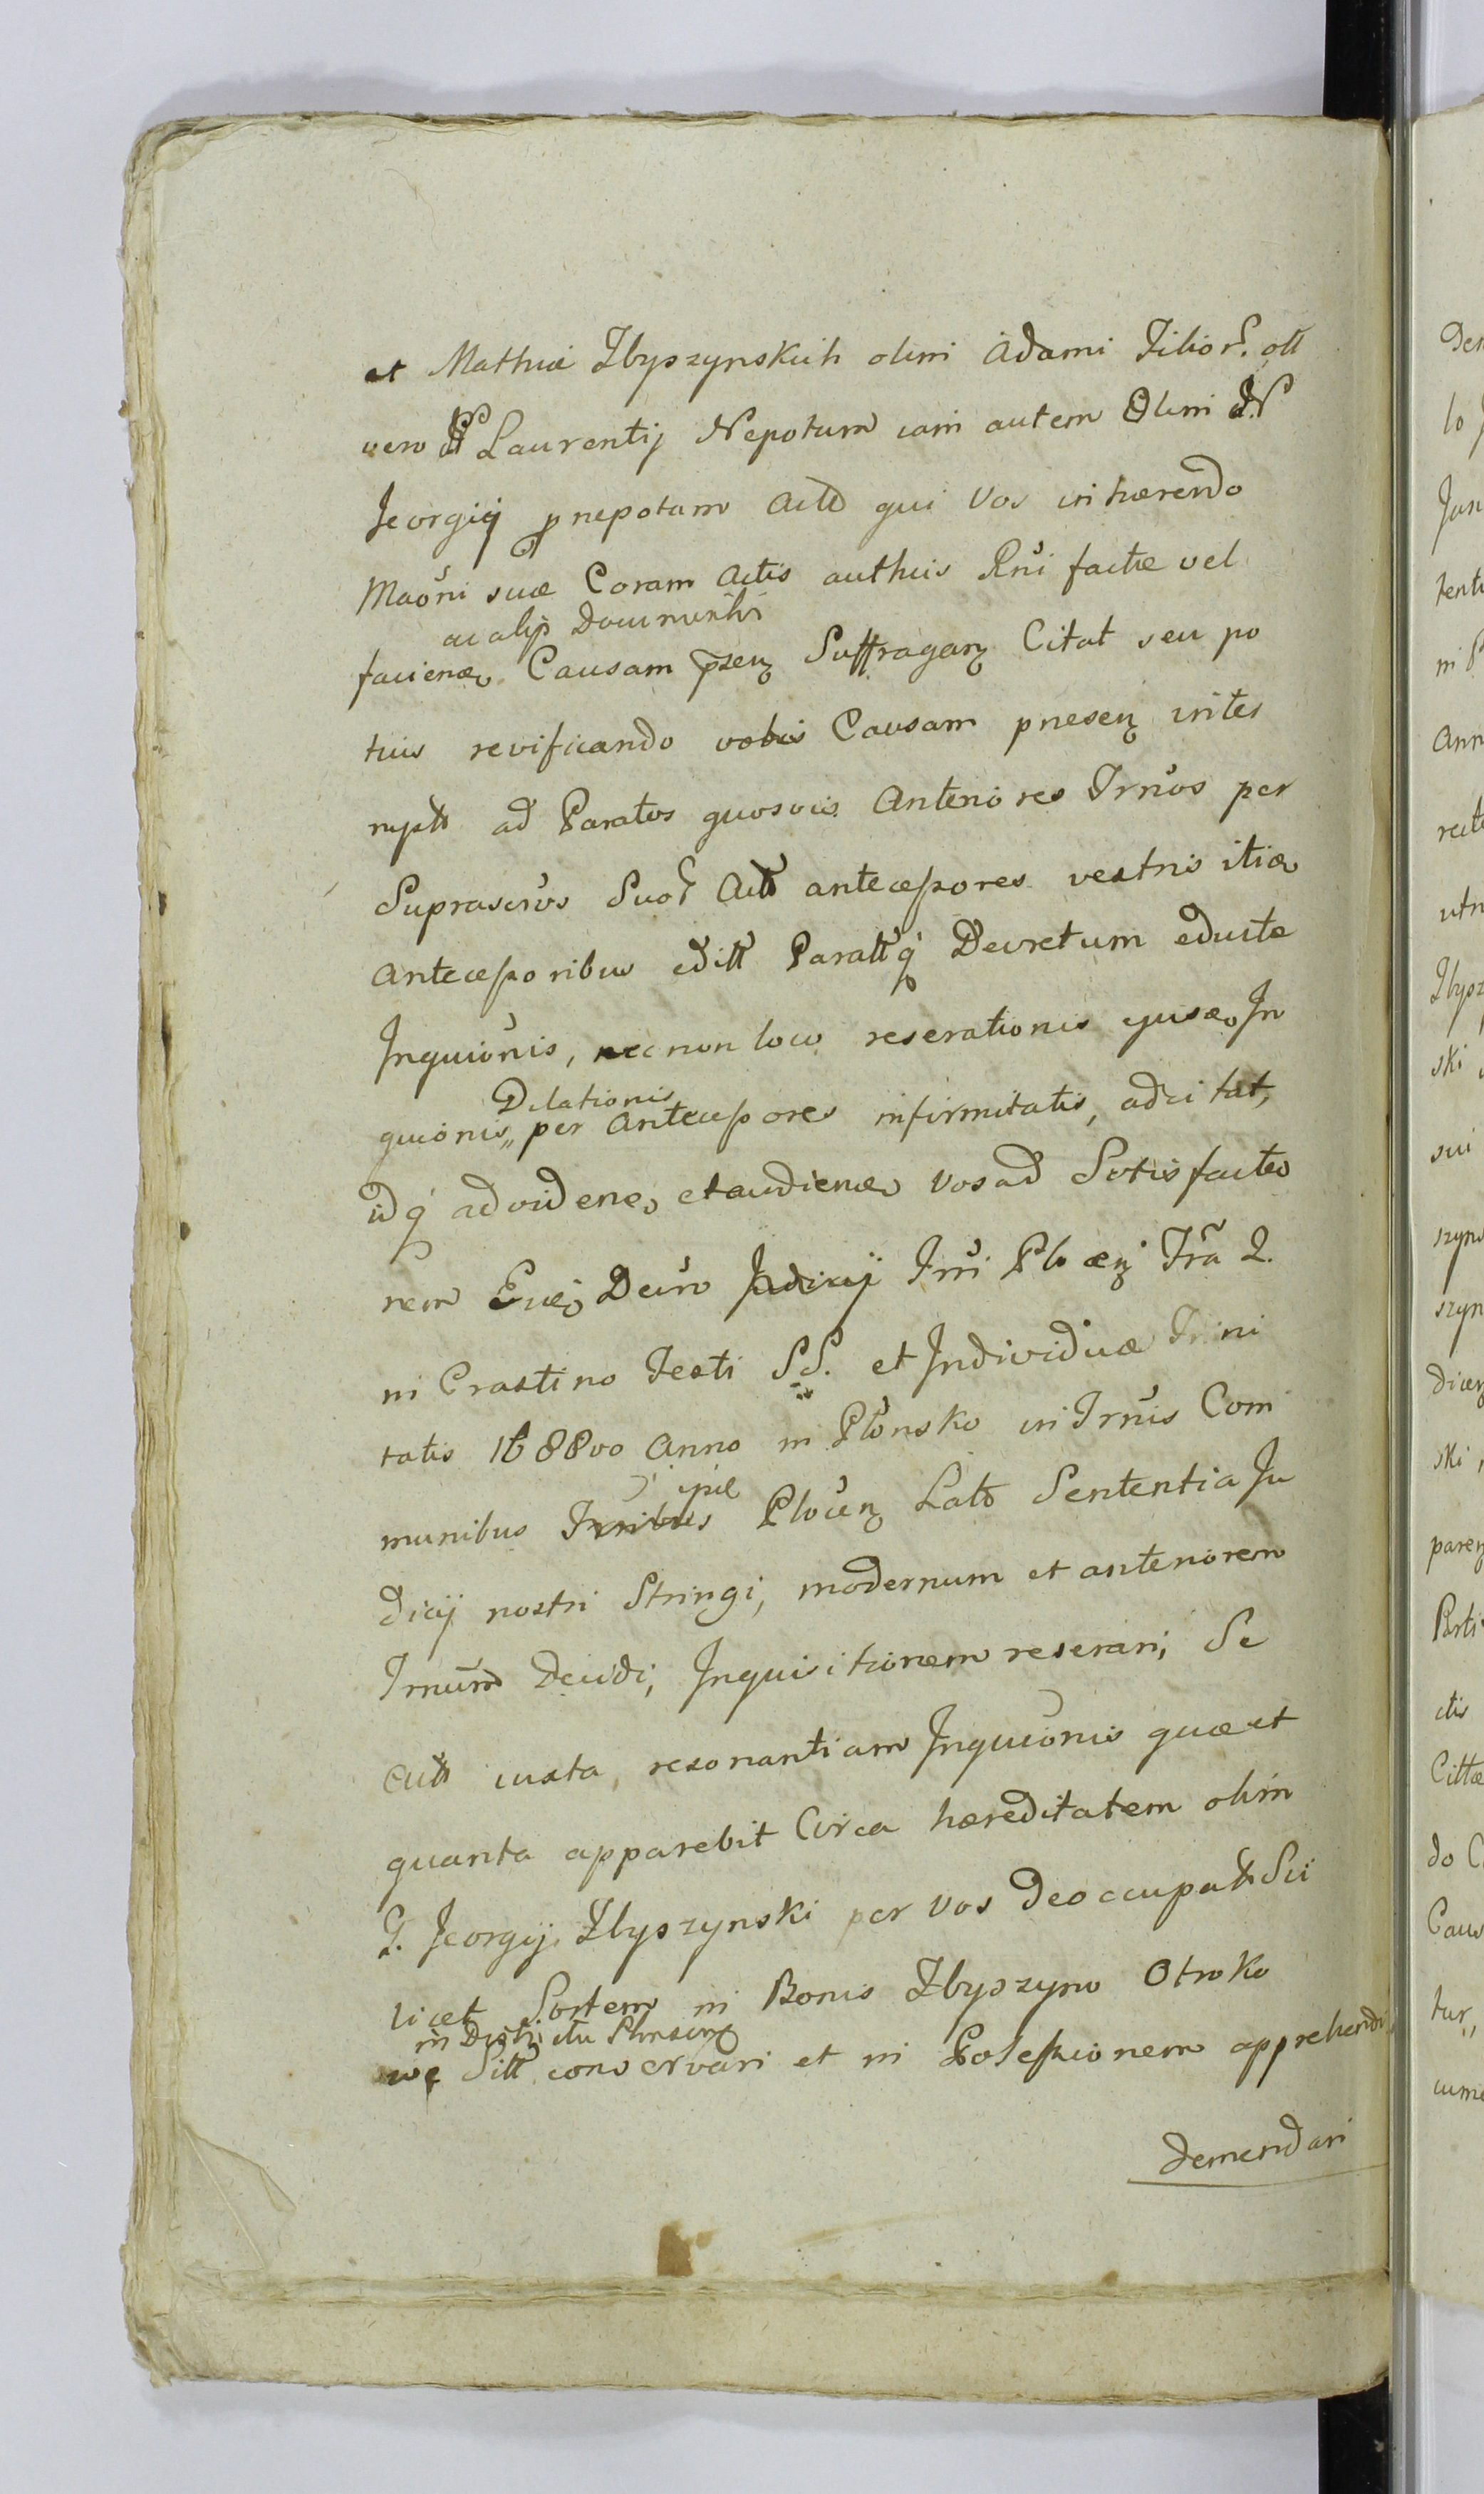 et Mathiæ Zbyszynskich olim Adami Filior. ott
vero Laurentij Nepotum iam autem Olim N
Jeorgij pnepotum Actt qui Vos inhærendo
Maōni suæ Coram Actis authcis Rnī factæ vel
ac alijs Documentis
faciendæ Causam p̄sen Suffragan Citat seu po
tius revificando vobis Causam pnesen intes
ad Paratos quosvis Anteriores Trnōs per
Suprascros Suor Actt antecessores vestris itidē
Antecessoribus editt Paratt q Decretum eductæ
Inquiōnis, nec non loco reserationis ejusdē In
Dilationis
quiōnis,, per Antecessores infirmitatis, adcitat,
idq ad videndē et audiendē Vos ad Sotisfactio
nem Decro Judicij Trri Plocen Fra 2.
in Crastino Festi SS. et Individuæ Trini
tatis 1688vo Anno in Płonsko in Trnis Com
munibus Trribus Plocen Lato Sententia Ju
ipie
dicij nostri Stringi, modernum et anteriorem
Trnum Decidi, Inquisitionem reserari, Se
Actt iuxta resonantiam Inquiōnis quæ et
quanta apparebit Circa hæreditatem olim
G. Jeorgij Zbyszynski per Vos Deoccupatt Sci
licet Sortem in Bonis Zbyszyno Otroko
in Districtu Plnscen
we Sitt conservari et in Possessionem apprehendi
demendari